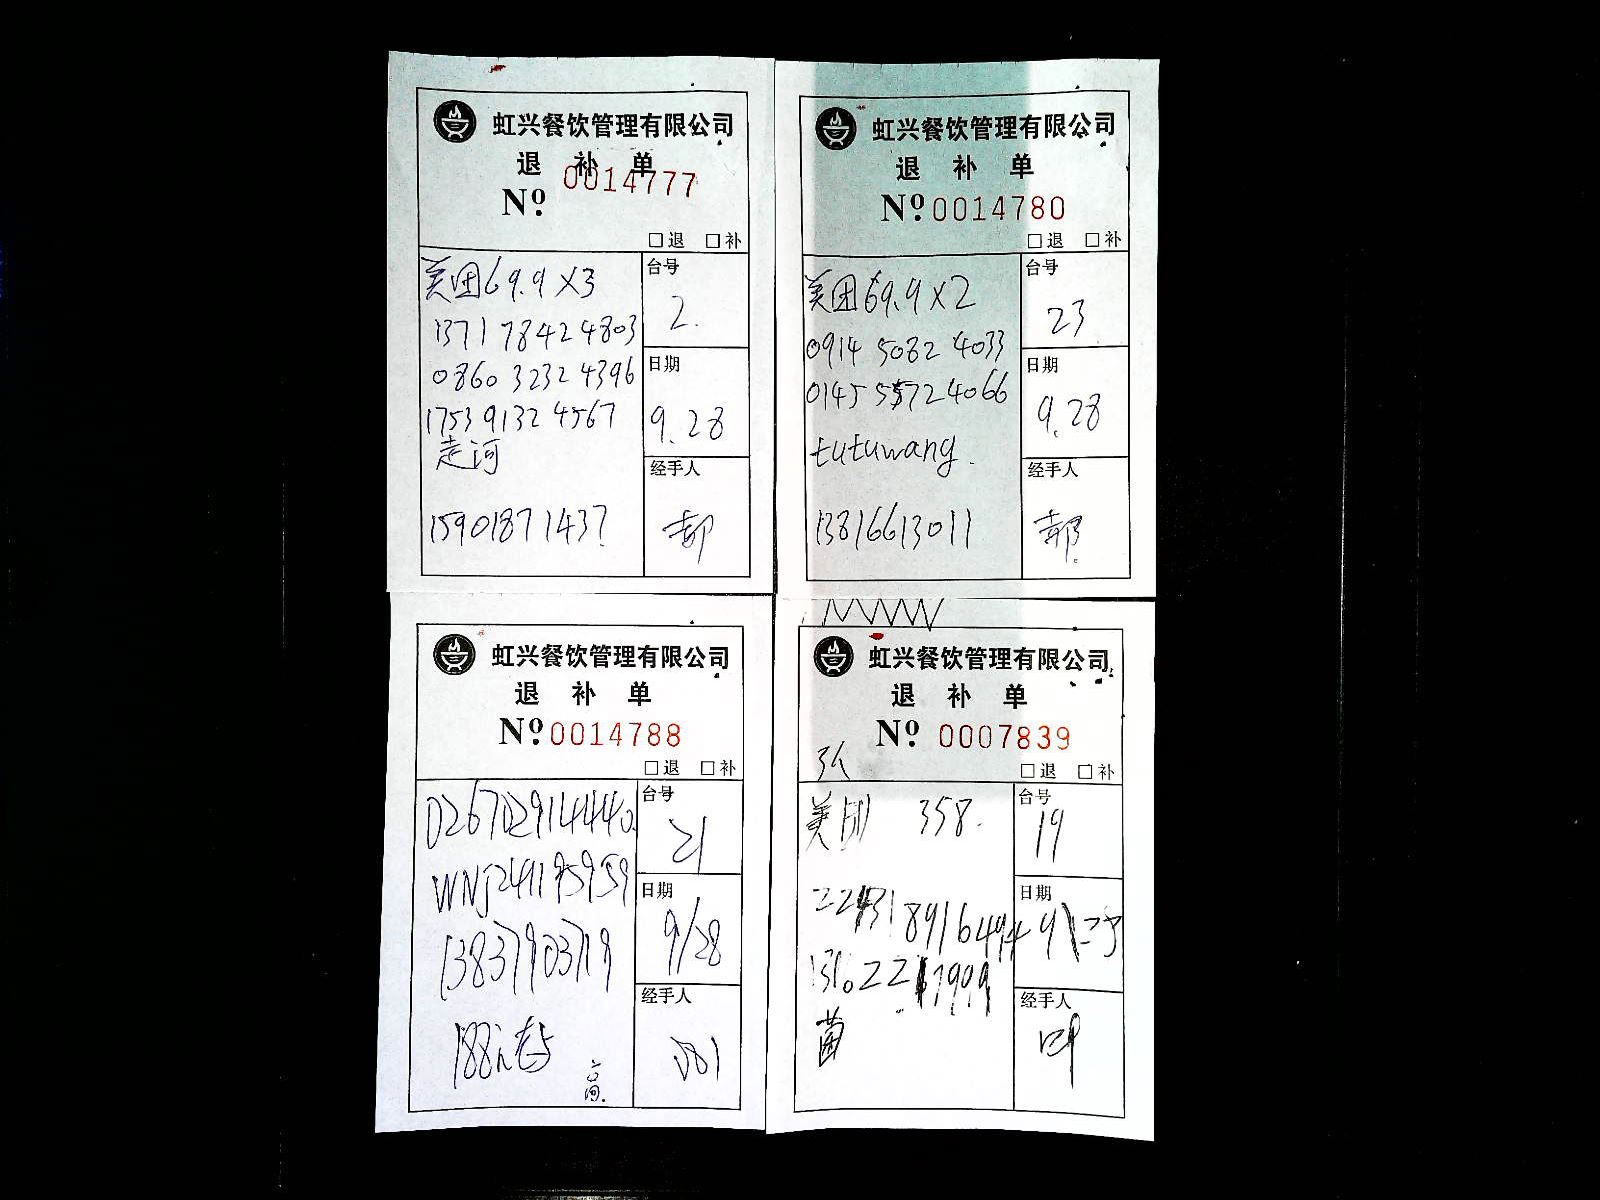 虹兴餐饮管理有限公司
退 补 单
Nº 0014777
□退 □补
美团69.9×3
1371 7842 4803
0860 3232 4396
1753 9132 4567
走河
15901871437
台号
2.
日期
9.28
经手人
郝
虹兴餐饮管理有限公司
退 补 单
Nº 0014780
□退 □补
美团69.9×2
0914 5082 4033
0145 5572 4066
tutuwang.
13816613011
台号
23
日期
9.28
经手人
郝
虹兴餐饮管理有限公司
退 补 单
Nº 0014788
□退 □补
026702914440
WNJ249195959
13837903719
188
台号
21
日期
9/28
经手人
虹兴餐饮管理有限公司
退 补 单
Nº 0007839
□退 □补
美团 358.
8916494
台号
19
日期
经手人